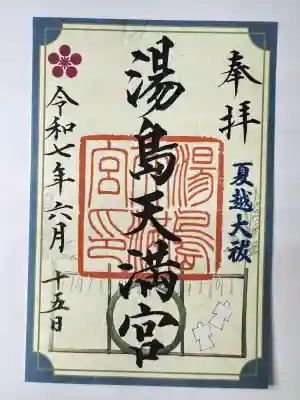 奉拝
夏越大祓
湯島天満宮
湯島天満宮印
令和七年六月
十五日